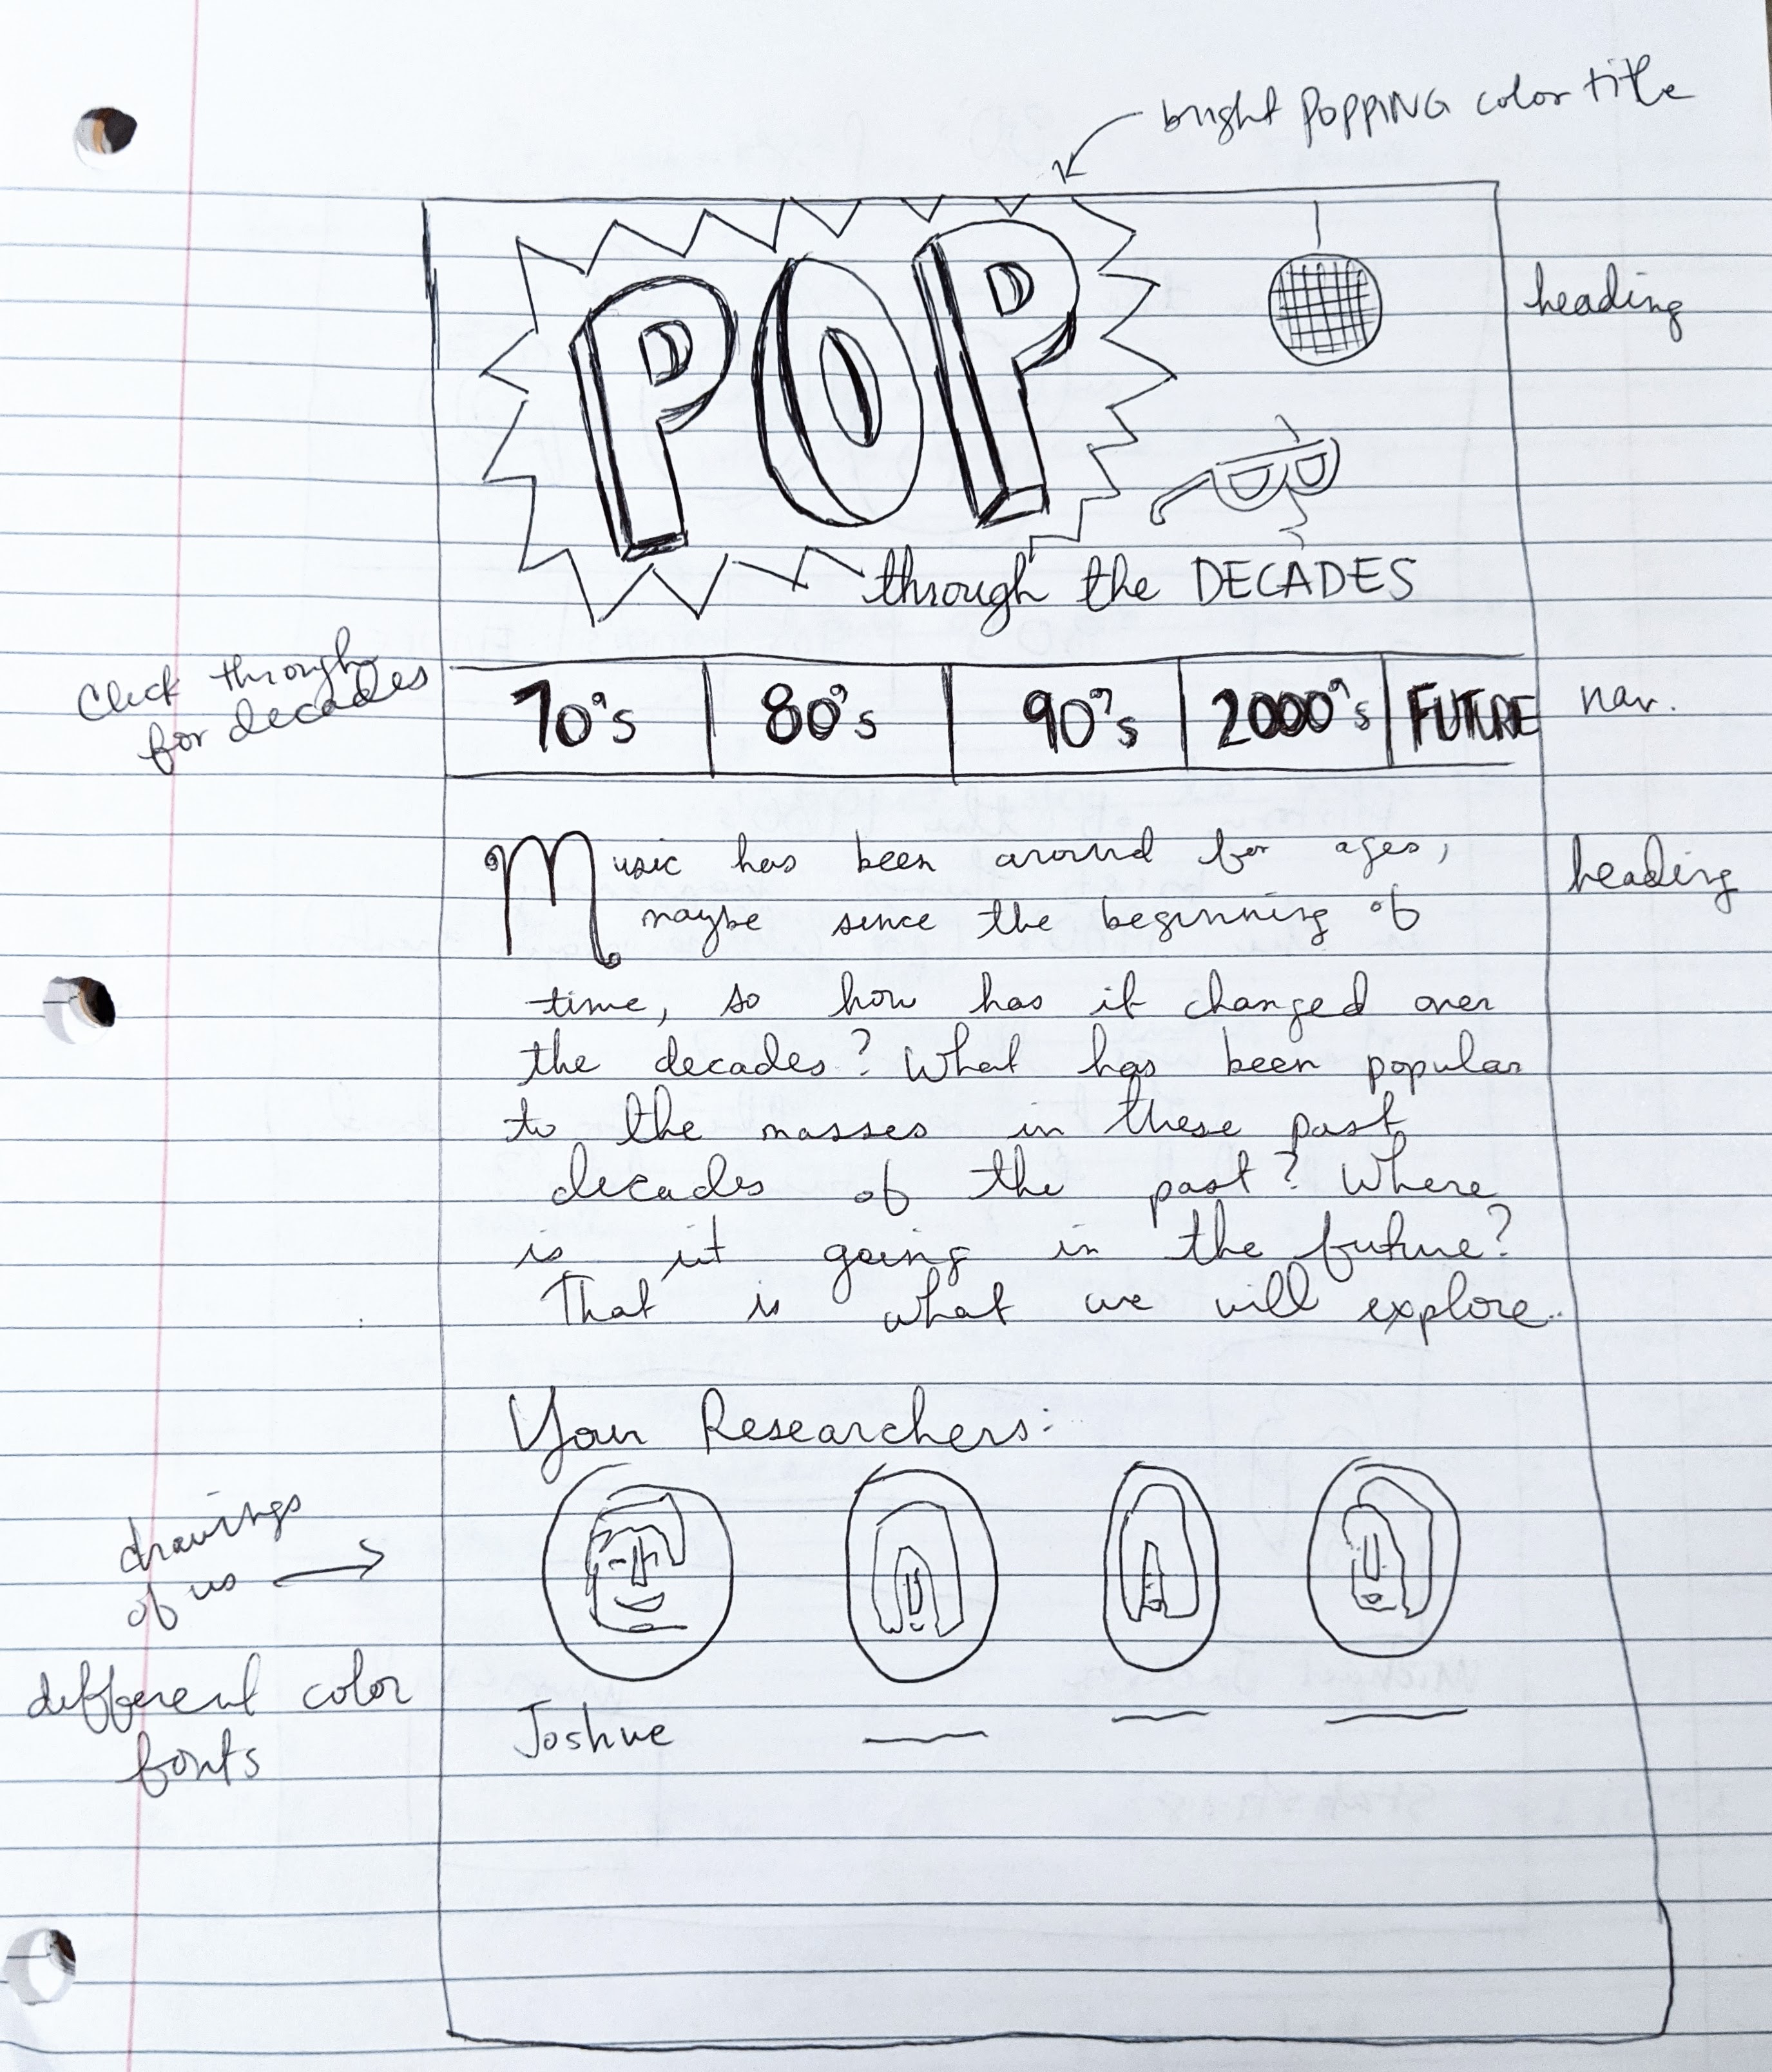 bright POPPING color title
heading
POP
through the DECADES
Click through
for decades
70's
80's
90's
2000's
FUTURE
nav.
Music has been around for ages,
maybe since the beginning of
time, so how has it changed over
the decades? What has been popular
to the masses in these past
decades of the past? Where
is it going in the future?
That is what we will explore.
heading
Your Researchers:
drawings
of us
different color
fonts
Joshue